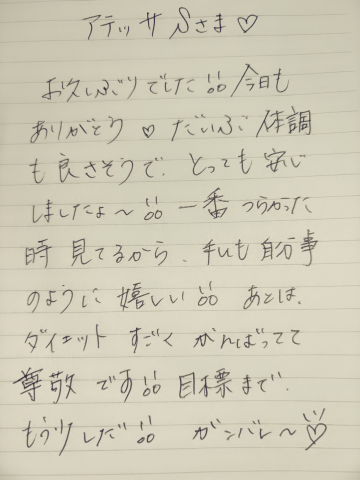 アテッサ Sさま♡
お久しぶりでした!! 今日も
ありがとう♡ だいぶ 体調
も良さそうで、とっても安心
しましたよ〜!! 一番つらかった
時見てるから、私も自分事
のように嬉しい!! あとは、
ダイエット すごく がんばってて
尊敬です!! 目標まで、
もう少しだ!! ガンバレ〜♡